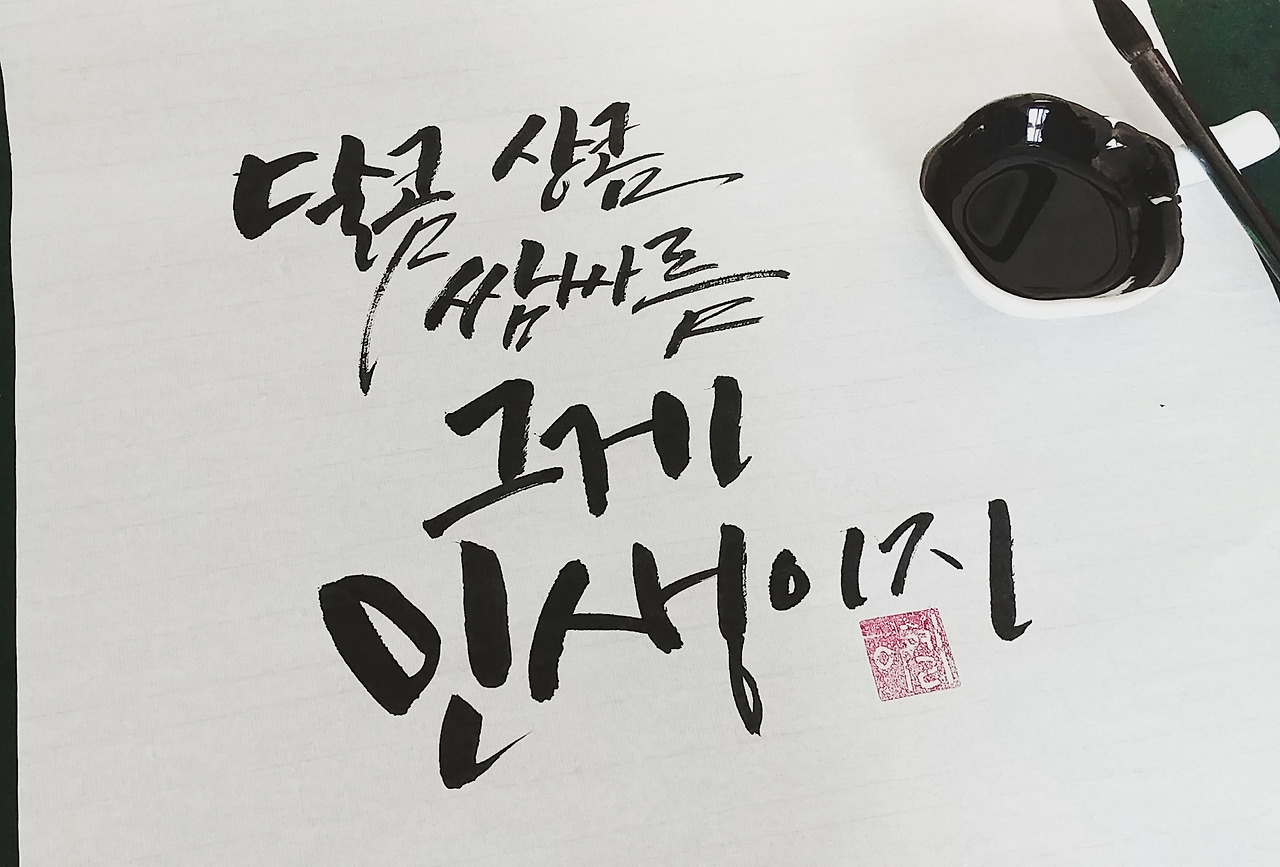 달콤 상콤
쌈싸름
그게
인생이지